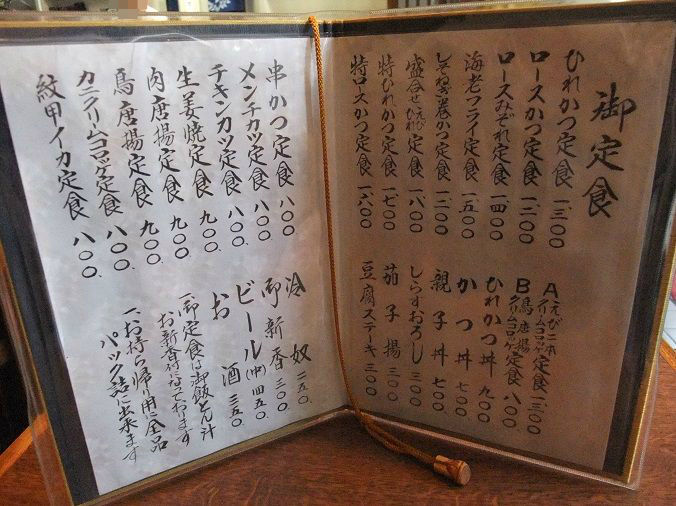 御定食
ひれかつ定食 一三〇〇
ロースかつ定食 一二〇〇
ロースみぞれ定食 一四〇〇
海老フライ定食 一五〇〇
しそねぎ巻かつ定食 一二〇〇
盛合せえびひれ定食 一八〇〇
特ひれかつ定食 一七〇〇
特ロースかつ定食 一六〇〇
A えび二本クリームコロッケ定食 一三〇〇
B 鳥唐揚クリームコロッケ定食 八〇〇
ひれかつ丼 九〇〇
かつ丼 七〇〇
親子丼 七〇〇
しらすおろし 三〇〇
茄子揚 三〇〇
豆腐ステーキ 三〇〇
串かつ定食 八〇〇
メンチカツ定食 八〇〇
チキンカツ定食 八〇〇
生姜焼定食 九〇〇
肉唐揚定食 九〇〇
鳥唐揚定食 九〇〇
カニクリームコロッケ定食 八〇〇
紋甲イカ定食 八〇〇
冷奴 二五〇
御新香 三〇〇
ビール(中) 四五〇
お酒 三五〇
一、御定食は御飯とん汁
お新香付になっております
一、お持ち帰り用に全品
パック詰に出来ます